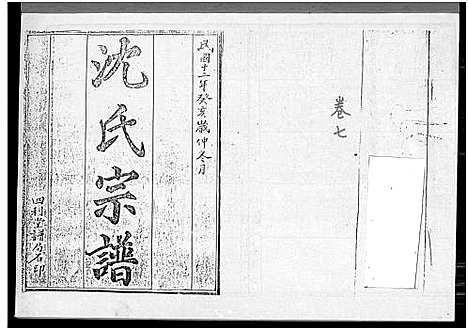 卷七
民國十二年癸亥歲仲冬月
沈氏宗譜